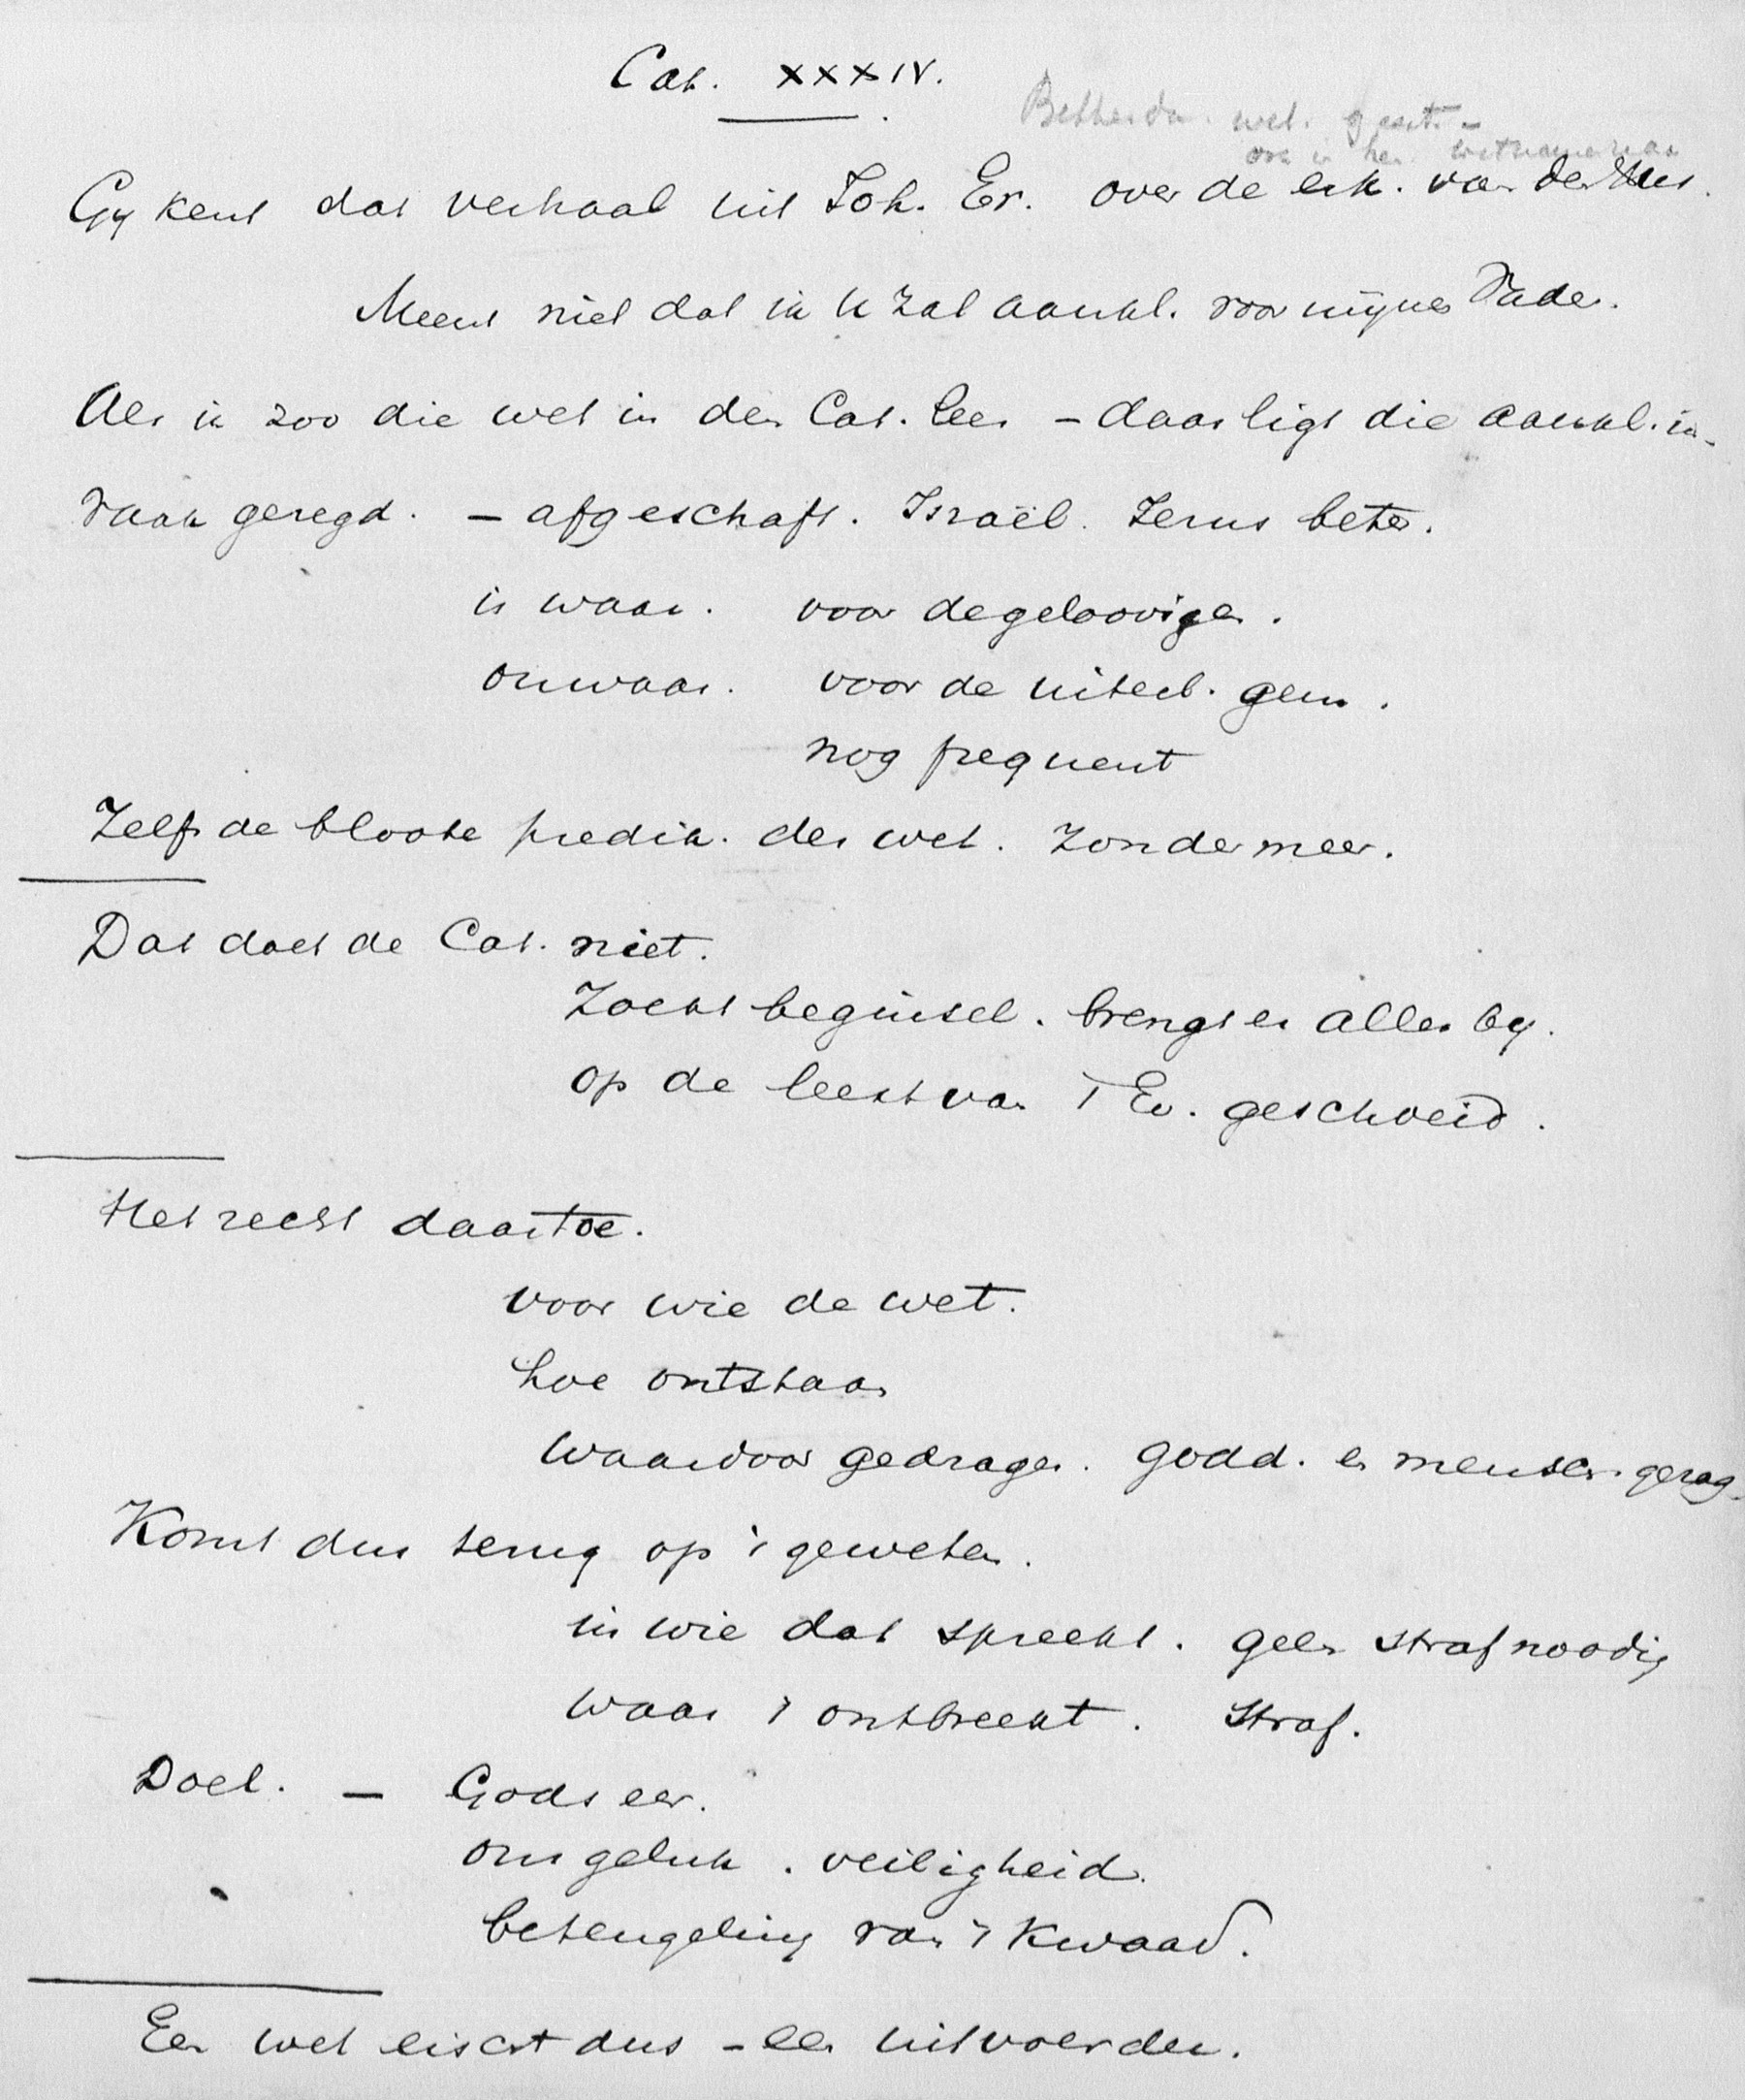 Cat. XXXIV.
Bethesda. wet.
Gy kent dat verhaal uit Joh. Ev. over de erk. van den
Meent niet dat ik U zal aankl. voor mynen Vader.
Als ik zoo die wet in den Cat. lees - daar ligt die aankl. in.
Vaak gezegd. - afgeschaft. Israël. Jezus beter.
is waar. voor de geloovigen.
onwaar. voor de uiterl. gem.
nog frequent
Zelfs de bloote predik. der wet. Zonder meer.
Dat doet de Cat. niet.
Zoekt beginsel. brengt er alles by.
op de leest van 't Ev. geschoeid.
Het recht daartoe.
voor wie de wet.
hoe ontstaan
waardoor gedragen. godd. en mensch. gezag.
Komt dus terug op 't geweten.
in wie dat spreekt. geen straf noodig
waar 't ontbreekt. straf.
Doel. - Gods eer.
ons geluk. veiligheid.
beteugeling van 't kwaad.
Een wet eischt dus - een uitvoerder.